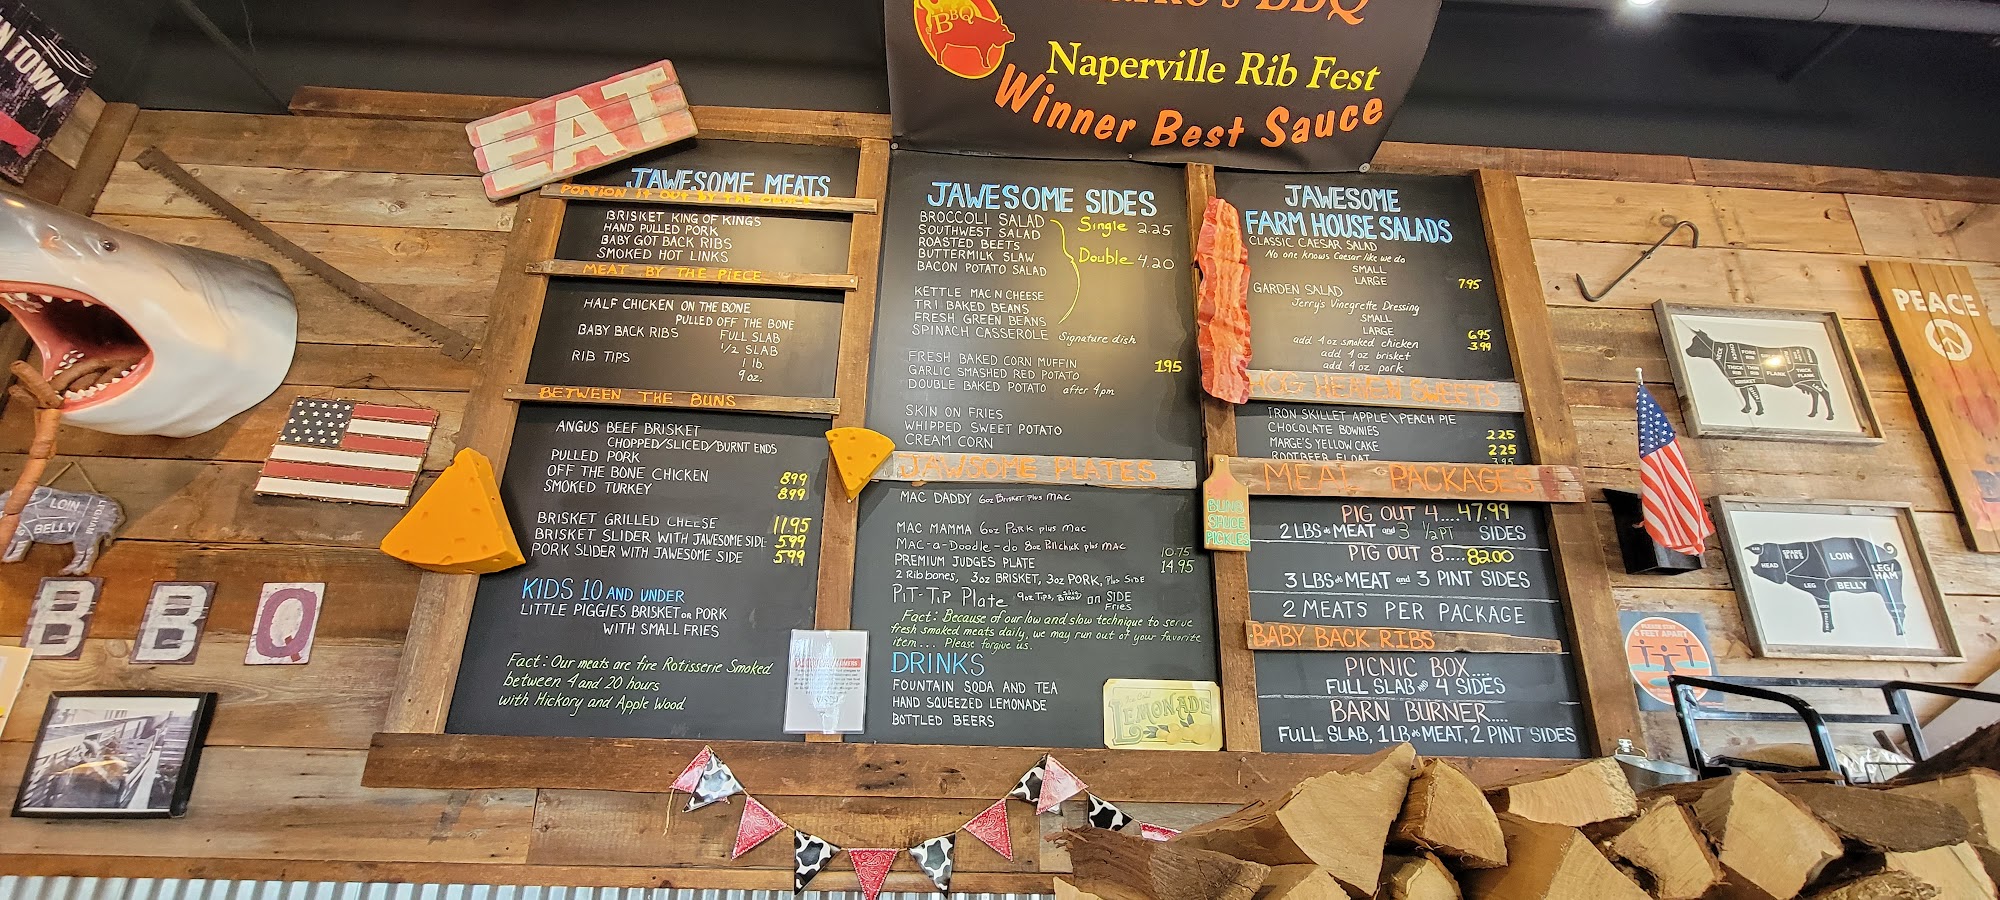 NTOWN
EAT
BBQ
BBQ
Naperville Rib Fest
Winner Best Sauce
JAWESOME MEATS
BRISKET KING OF KINGS
HAND PULLED PORK
BABY GOT BACK RIBS
SMOKED HOT LINKS
MEAT BY THE PIECE
HALF CHICKEN ON THE BONE
PULLED OFF THE BONE
BABY BACK RIBS FULL SLAB
1/2 SLAB
RIB TIPS 1 lb.
9 oz.
BETWEEN THE BUNS
ANGUS BEEF BRISKET
CHOPPED/SLICED/BURNT ENDS
PULLED PORK
OFF THE BONE CHICKEN 899
SMOKED TURKEY 899
BRISKET GRILLED CHEESE 11.95
BRISKET SLIDER WITH JAWESOME SIDE 5.99
PORK SLIDER WITH JAWESOME SIDE 5.99
KIDS 10 AND UNDER
LITTLE PIGGIES BRISKET OR PORK
WITH SMALL FRIES
Fact: Our meats are fire Rotisserie Smoked
between 4 and 20 hours
with Hickory and Apple Wood
JAWESOME SIDES
BROCCOLI SALAD Single 2.25
SOUTHWEST SALAD
ROASTED BEETS
BUTTERMILK SLAW Double 4.20
BACON POTATO SALAD
KETTLE MAC N CHEESE
TRI BAKED BEANS
FRESH GREEN BEANS
SPINACH CASSEROLE Signature dish
FRESH BAKED CORN MUFFIN 195
GARLIC SMASHED RED POTATO
DOUBLE BAKED POTATO after 4pm
SKIN ON FRIES
WHIPPED SWEET POTATO
CREAM CORN
JAWSOME PLATES
MAC DADDY 6oz Brisket Plus MAC
MAC MAMMA 6oz Pork plus Mac
MAC-a-Doodle-do 8oz Pull chick plus MAC 10.75
PREMIUM JUDGES PLATE 14.95
2 Rib bones, 3oz BRISKET, 3oz PORK, Plus SIDE
PiT-TiP Plate 9oz Tips, on SIDE
Fries
Fact: Because of our low and slow technique to serve
fresh smoked meats daily, we may run out of your favorite
item... Please forgive us.
DRINKS
FOUNTAIN SODA AND TEA
HAND SQUEEZED LEMONADE
BOTTLED BEERS
LEMONADE
JAWESOME
FARM HOUSE SALADS
CLASSIC CAESAR SALAD
No one knows Caesar like we do
SMALL
LARGE 7.95
GARDEN SALAD
Jerry's Vinegrette Dressing
SMALL
LARGE 6.95
add 4 oz smoked chicken 3.99
add 4 oz brisket
add 4 oz pork
HOG HEAVEN SWEETS
IRON SKILLET APPLE\PEACH PIE
CHOCOLATE BOWNIES 2.25
MARGE'S YELLOW CAKE 2.25
ROOTBEER FLOAT 3.95
MEAL PACKAGES
BUNS
SAUCE
PICKLES
PIG OUT 4....47.99
2 LBS of MEAT and 3 1/2 PT SIDES
PIG OUT 8....82.00
3 LBS of MEAT and 3 PINT SIDES
2 MEATS PER PACKAGE
BABY BACK RIBS
PICNIC BOX....
FULL SLAB AND 4 SIDES
BARN BURNER....
FULL SLAB, 1 LB of MEAT, 2 PINT SIDES
PEACE
LOIN
BELLY
BBQ
HEAD
LOIN
LEG
BELLY
LEG/
HAM
PLEASE STAY
6 FEET APART